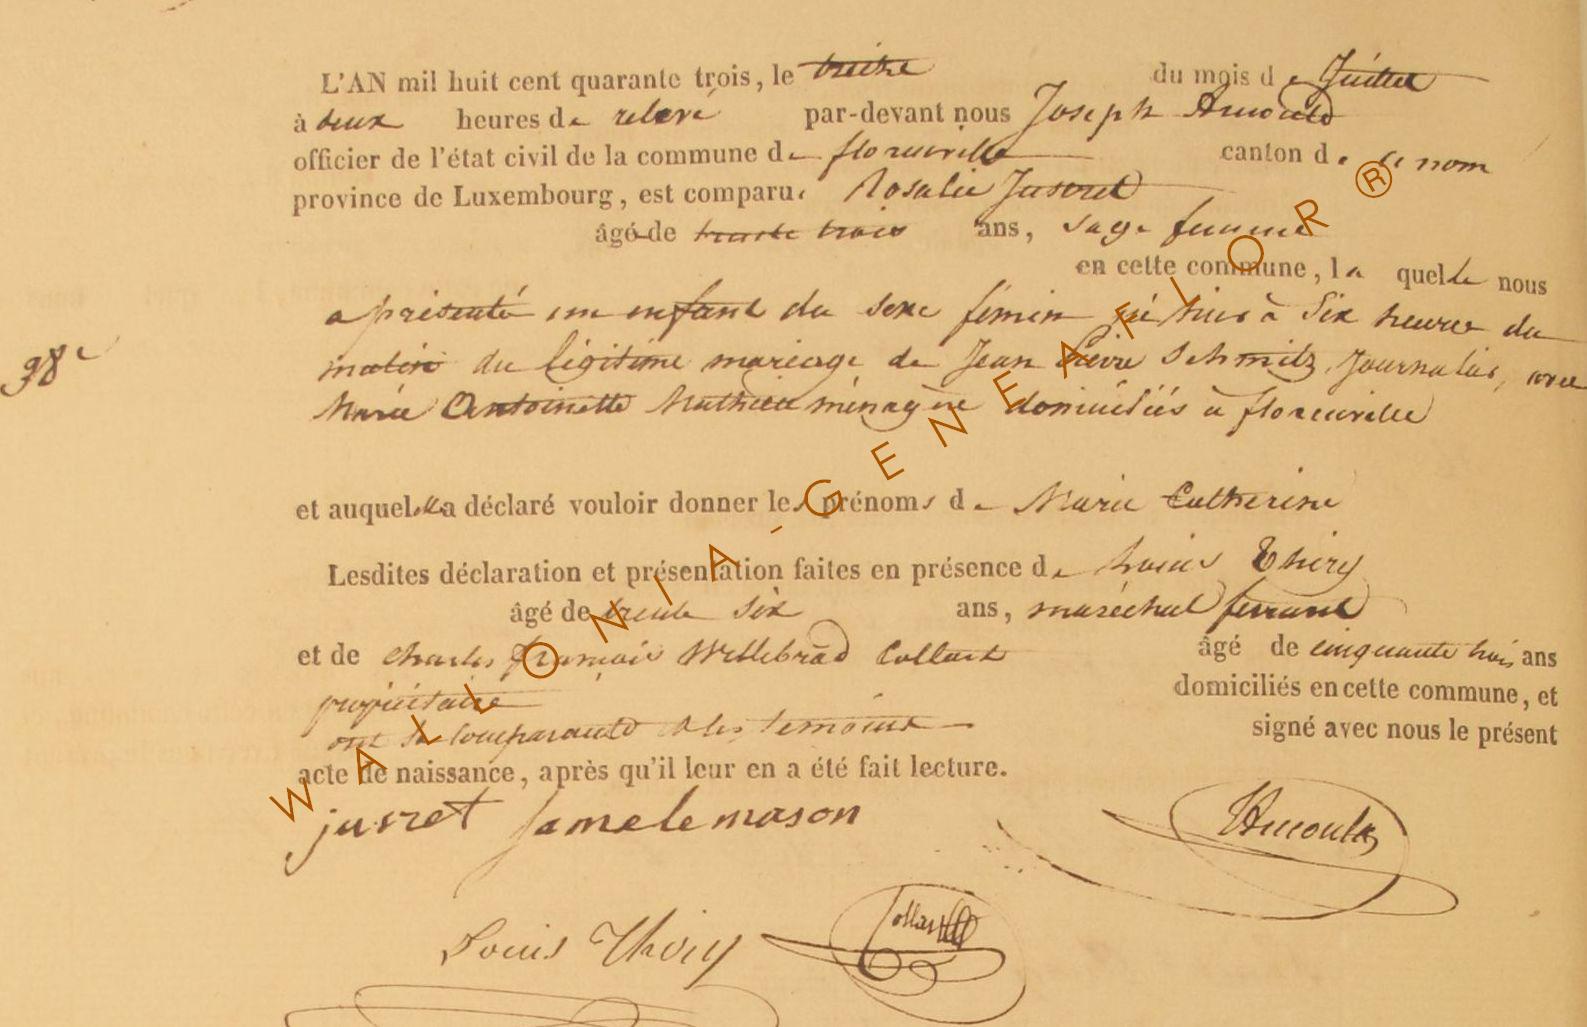 L'AN mil huit cent quarante trois, le treize du mois de Juillet
à deux heures de relevé par-devant nous Joseph Arnould
officier de l'état civil de la commune de florenville canton de ce nom
province de Luxembourg, est comparue Rosalie Jusseret
âgé de trente trois ans, sage femme
en cette commune, la quelle nous
a présenté un enfant du sexe féminin né hier à Six heures du
matin du légitime mariage de Jean Pierre Schmitz Journalier, avec
Marie Antoinette Mathieu ménagère domiciliés à florenville
98e
et auquel elle a déclaré vouloir donner les prénoms de Marie Catherine
Lesdites déclaration et présentation faites en présence de Louis Thiry
âgé de trente six ans, maréchal ferrant
et de Charles françois Willebrod Collart âgé de cinquante trois ans
propriétaire domiciliés en cette commune, et
ont la comparante et les temoins signé avec nous le présent
acte de naissance, après qu'il leur en a été fait lecture.
Arnould
Louis Thiry
Collart
WALLONIA-GENEAFLOR®